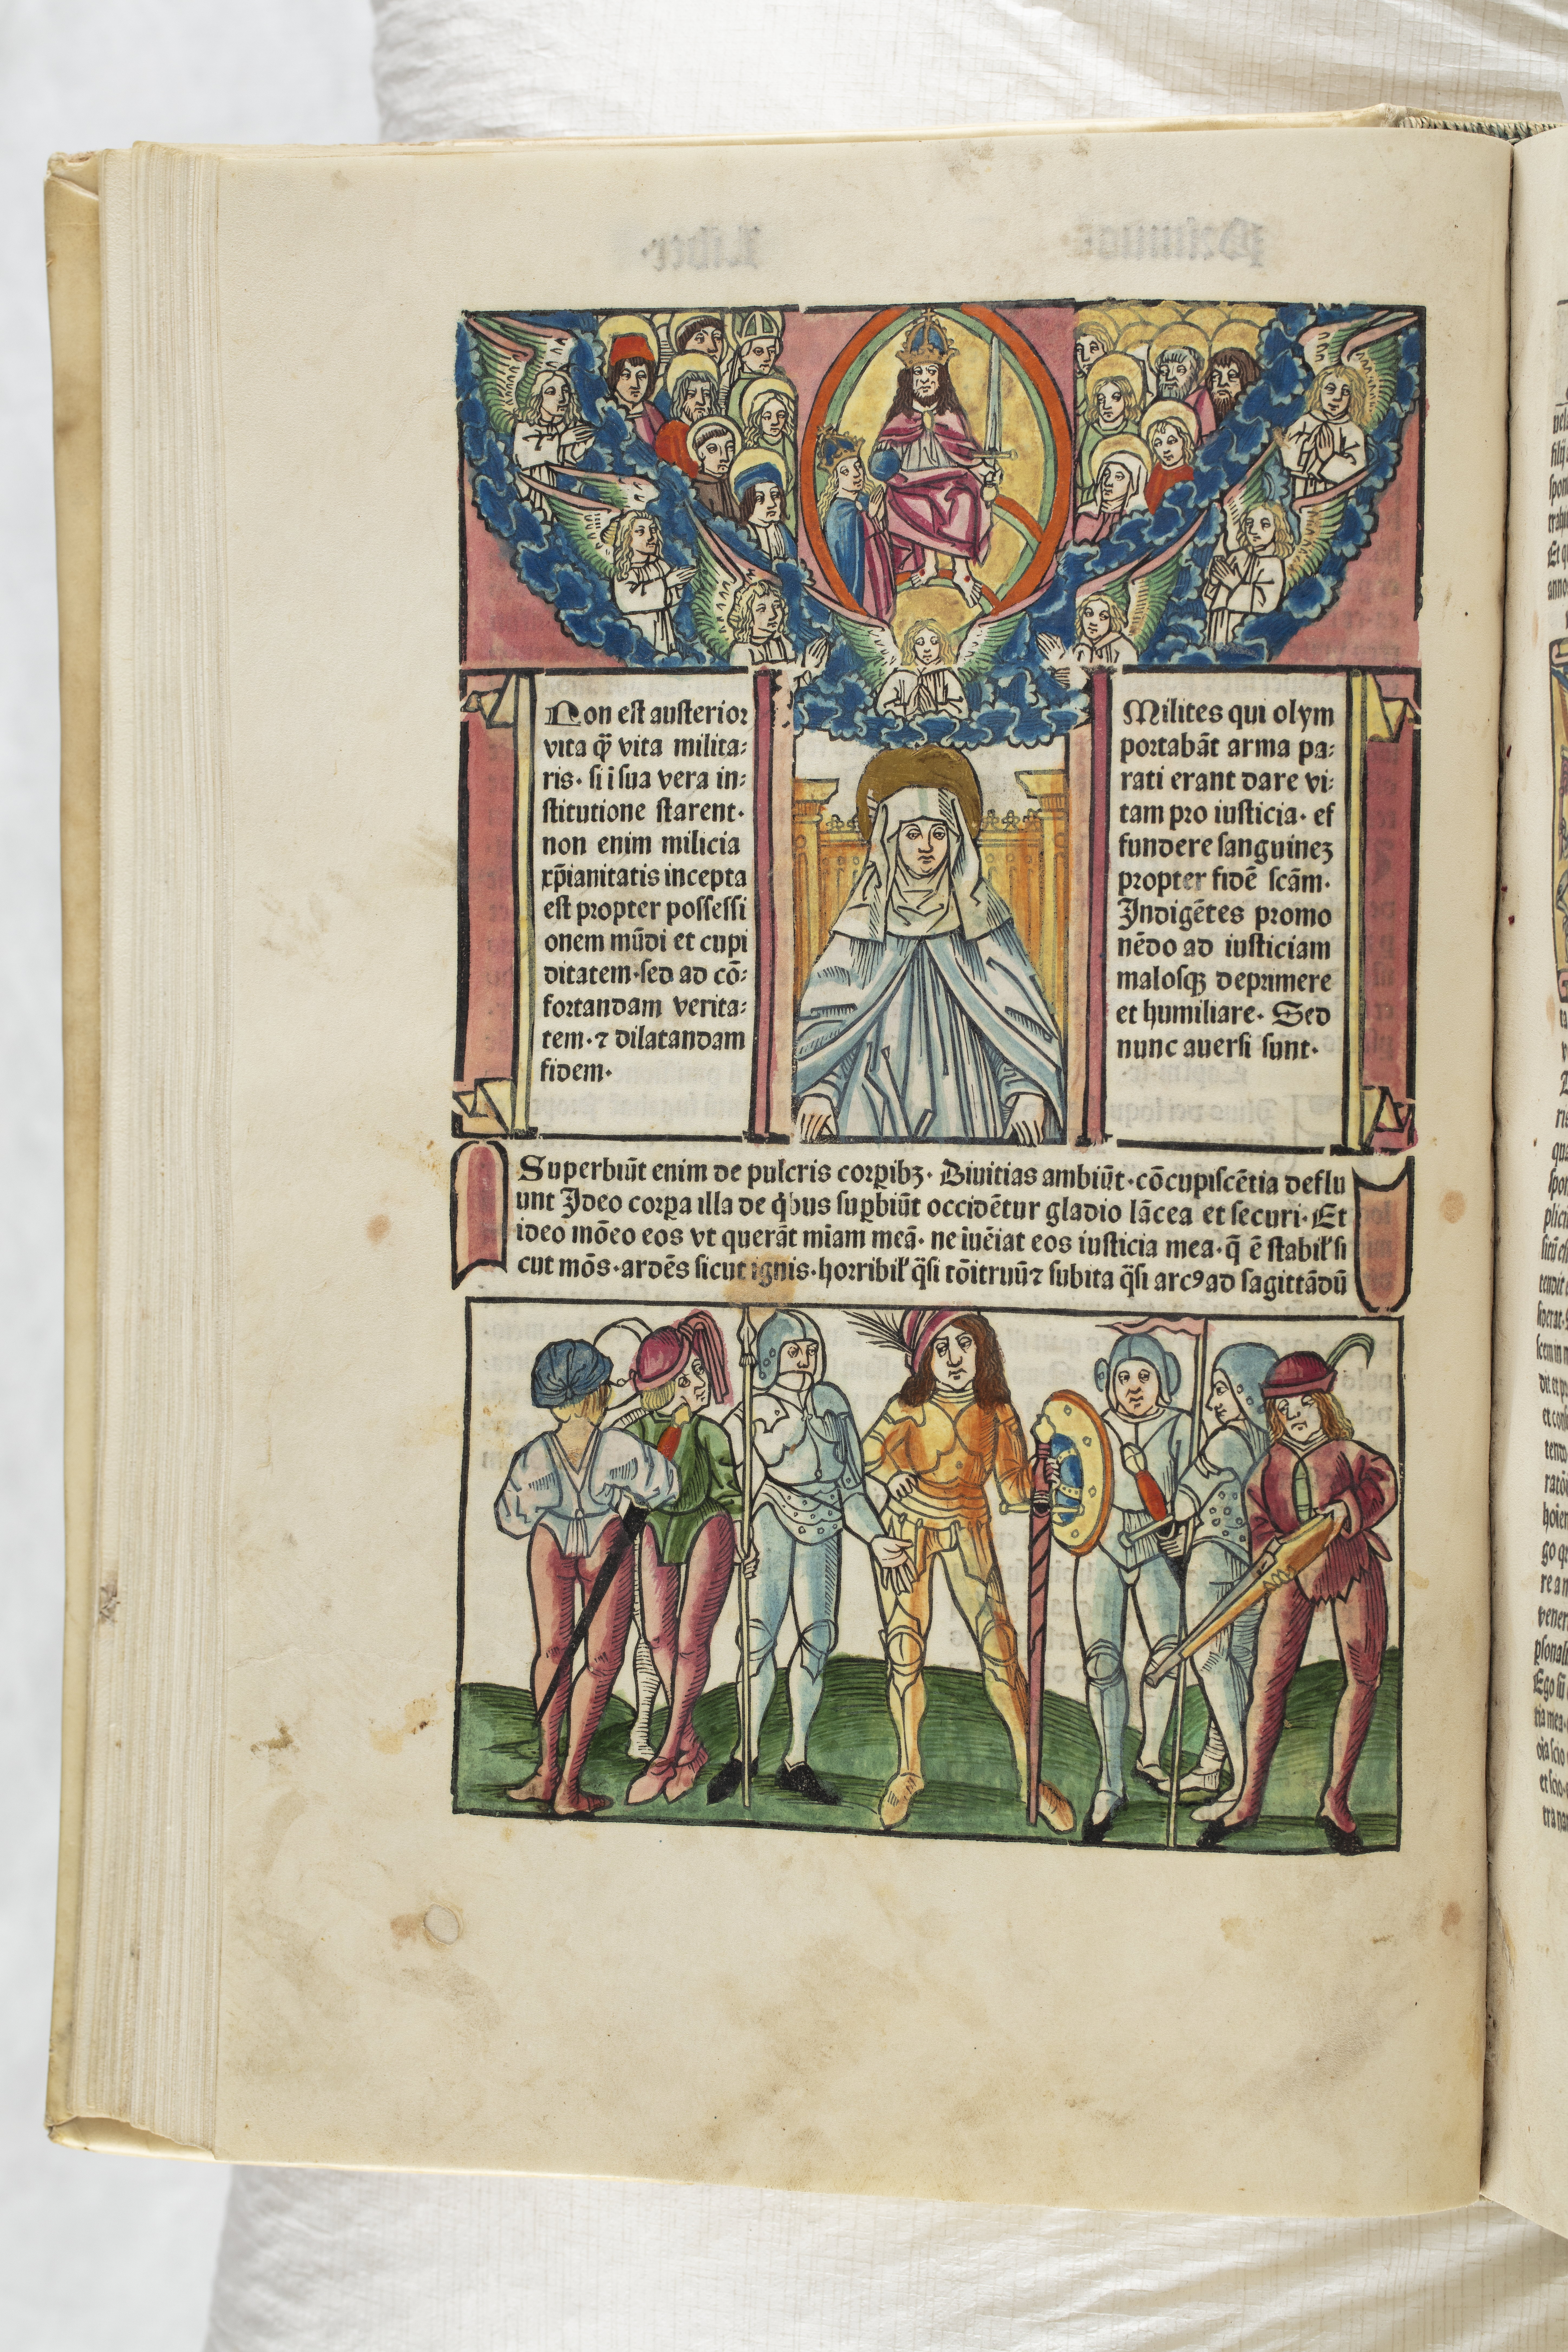 Non est austerior
vita q̃ vita milita⸗
ris. si ĩ sua vera in⸗
stitutione starent.
non enim milicia
xp̃ianitatis incepta
est propter possessi
onem mũdi et cupi
ditatem. sed ad cõ⸗
fortandam verita⸗
tem. ⁊ dilatandam
fidem.
Milites qui olym
portabãt arma pa⸗
rati erant dare vi⸗
tam pro iusticia. ef
fundere sanguineʒ
propter fidẽ scãm.
Indigẽtes promo
nẽdo ad iusticiam
malosqꝫ deprimere
et humiliare. Sed
nunc auersi sunt.
Superbiũt enim de pulcris corꝑibꝫ. Diuitias ambiũt. cõcupiscẽtia deflu
unt Ideo corꝑa illa de q̇bus suꝑbiũt occidẽtur gladio lãcea et securi. Et
ideo mõeo eos vt querãt miam meã. ne iuẽiat eos iusticia mea. q̃ ẽ stabil' si
cut mõs. ardẽs sicut ignis. horribil' q̃si tõitruũ ⁊ subita q̃si arcꝰ ad sagittãdũ